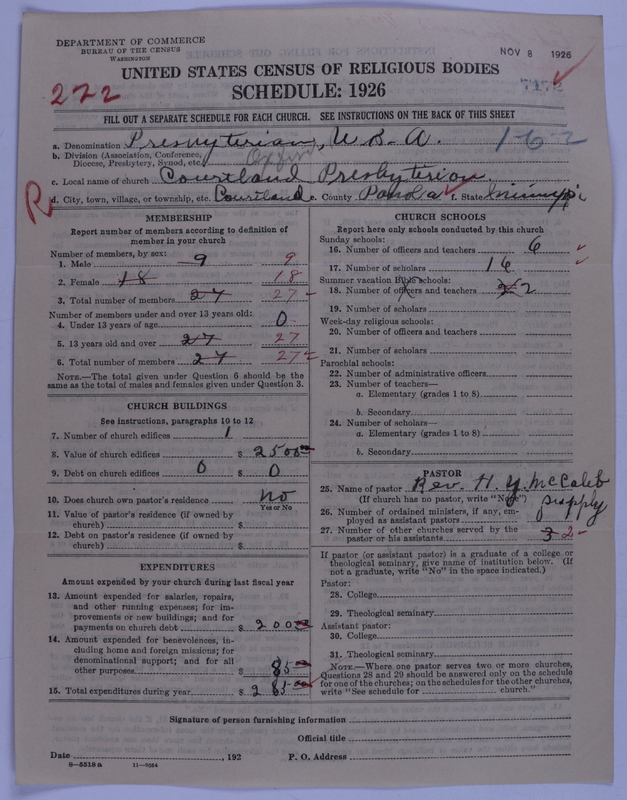 DEPARTMENT OF COMMERCE
BUREAU OF THE CENSUS
WASHINGTON
NOV 8 1926
UNITED STATES CENSUS OF RELIGIOUS BODIES
7172
272
SCHEDULE: 1926
FILL OUT A SEPARATE SCHEDULE FOR EACH CHURCH. SEE INSTRUCTIONS ON THE BACK OF THIS SHEET
a. Denomination Presbyterian, U.S.A. 162
b. Division (Association, Conference, Diocese, Presbytery, Synod, etc.) Oxford
c. Local name of church Courtland Presbyterian
R
d. City, town, village, or township, etc. Courtland e. County Panola f. State Mississippi
MEMBERSHIP
Report number of members according to definition of member in your church
Number of members, by sex:
1. Male 9 9
2. Female 18 18
3. Total number of members 27 27
Number of members under and over 13 years old:
4. Under 13 years of age 0
5. 13 years old and over 27 27
6. Total number of members 27 27
NOTE.—The total given under Question 6 should be the same as the total of males and females given under Question 3.
CHURCH BUILDINGS
See instructions, paragraphs 10 to 12
7. Number of church edifices 1
8. Value of church edifices $ 2500
9. Debt on church edifices 0 $ 0
10. Does church own pastor's residence No
Yes or No
11. Value of pastor's residence (if owned by church) $
12. Debt on pastor's residence (if owned by church) $
EXPENDITURES
Amount expended by your church during last fiscal year
13. Amount expended for salaries, repairs, and other running expenses; for improvements or new buildings; and for payments on church debt $ 200
14. Amount expended for benevolences, including home and foreign missions; for denominational support; and for all other purposes $ 85
15. Total expenditures during year $ 285
CHURCH SCHOOLS
Report here only schools conducted by this church
Sunday schools:
16. Number of officers and teachers 6
17. Number of scholars 16
Summer vacation Bible schools:
18. Number of officers and teachers 2
19. Number of scholars
Week-day religious schools:
20. Number of officers and teachers
21. Number of scholars
Parochial schools:
22. Number of administrative officers
23. Number of teachers—
a. Elementary (grades 1 to 8)
b. Secondary
24. Number of scholars—
a. Elementary (grades 1 to 8)
b. Secondary
PASTOR
25. Name of pastor Rev. H. Y. McCaleb
(If church has no pastor, write "No") supply
26. Number of ordained ministers, if any, employed as assistant pastors
27. Number of other churches served by the pastor or his assistants 3 2
If pastor (or assistant pastor) is a graduate of a college or theological seminary, give name of institution below. (If not a graduate, write "No" in the space indicated.)
Pastor:
28. College
29. Theological seminary
Assistant pastor:
30. College
31. Theological seminary
NOTE.—Where one pastor serves two or more churches, Questions 28 and 29 should be answered only on the schedule for one of the churches; on the schedules for the other churches, write "See schedule for church."
Signature of person furnishing information
Official title
Date , 192 P. O. Address
8—5518a 11—9064